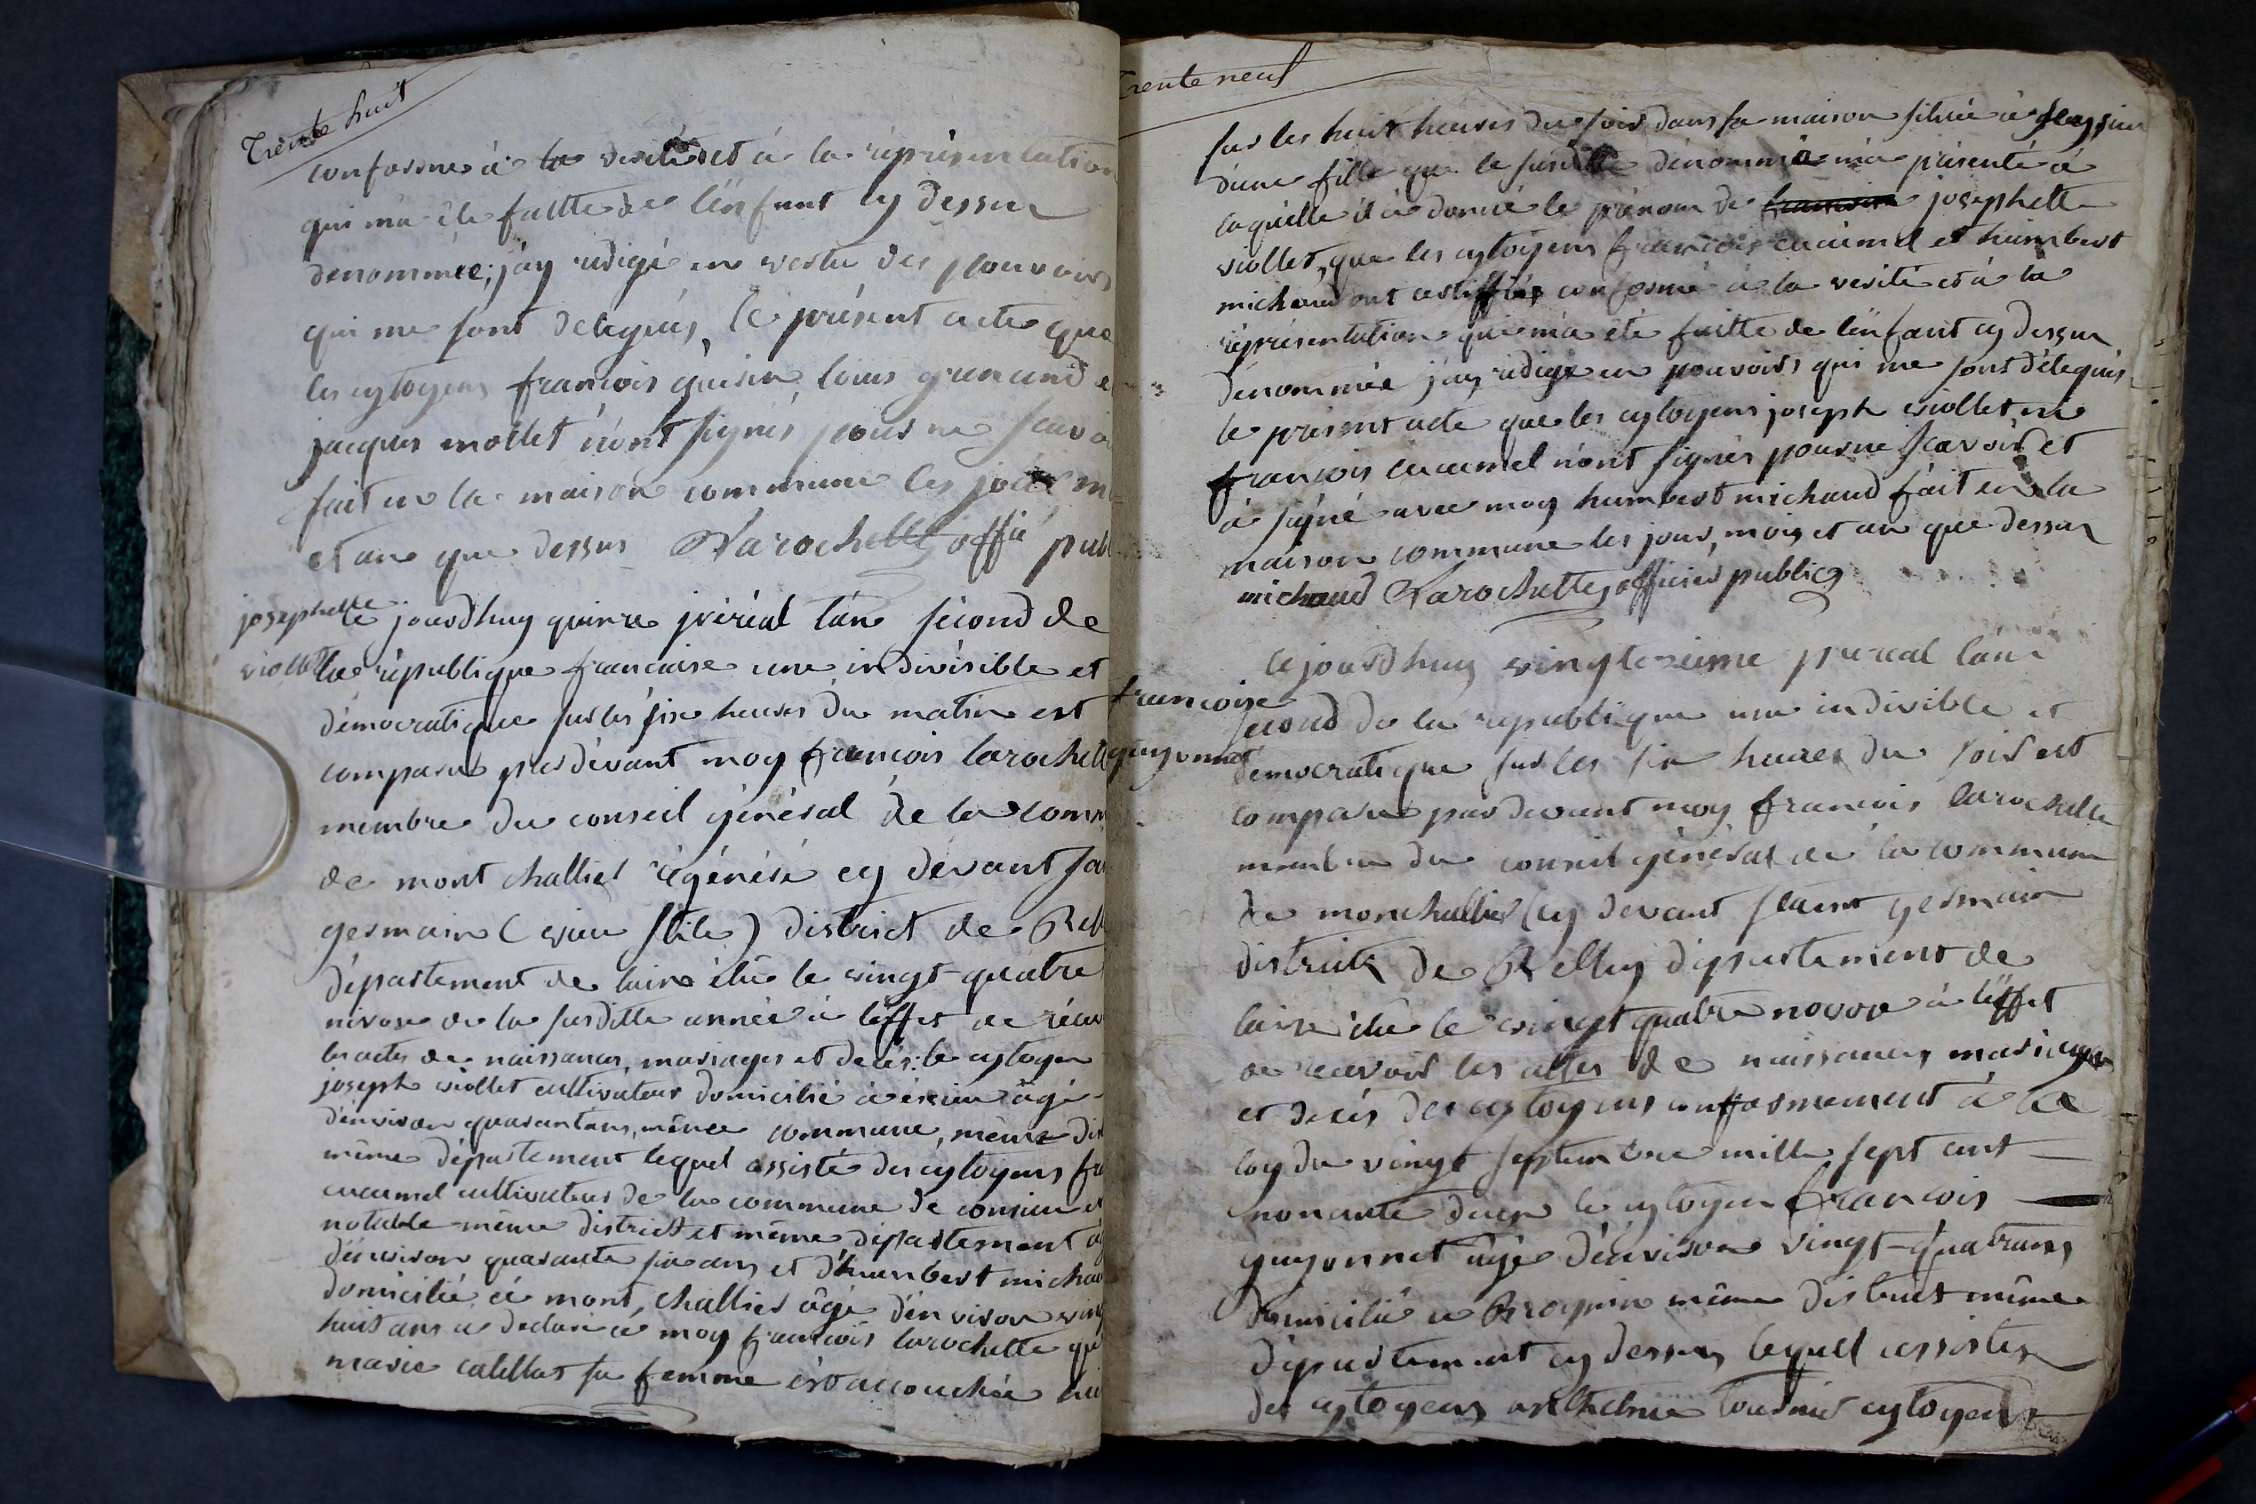 Trente huit
conforme à la verité et à la répresentation
qui m'a été faitte de l'enfant cy dessus
denommée, j'ay rédigé en vertu des pouvoirs
qui me sont delegués, le présent acte que
les cytoyens françois guisin, louis grunand e
jacques mollet n'ont signés pour ne scavoi
fait en la maison commune les jour m
et an que dessus Larochette offié pub
josephette
viollet
jourdhuy quinze préréal l'an sécond de
la république francaise une indivisible et
démocratique sur les six heures du matin est
comparu pardévant moy françois larochett
membre du conseil général de la comm
de mont challier régénéré cy dévant sa
germain (vieu stile) district de Bell
département de lain élu le vingt-quatre
nivose de la susditte année à l'effet de récev
les actes de naissances, mariages et decés: le cytoyen
joseph viollet cultivateur domicilié à age
d'environ quarantans, même commune, même dis
même département lequel assisté des cytoyens fra
cucumel cultivateur de la commune de consieu et
notable même district et même département ag
d'environ quarante six ans et d'humbert michau
domicilié à mont, challier âgé d'environ ving
huit ans a declaré a moy françois larochette que
marie catillat sa femme est accouchée hi
Trente neuf
sur les huit heures du soir dans sa maison située à
d'une fille que le susditte dénommé m'a présenté à
laquelle il a donné le prénom de josephette
viollet, que les cytoyens françois cucumel et humbert
michaud ont certiffiés conforme à la verité et à la
répresentation qui m'a été faitte de l'enfant cy dessus
dénommée j'ay rédigé en pouvoirs qui me sont délegués
le présent acte que les cytoyens joseph viollet ni
françois cucumel n'ont signés pour ne scavoir et
à signé avec moy humbert michaud fait en la
maison commune les jour, mois et an que dessus
michaud Larochette, officier public
françoise
guyonnet
cejourdhuy vingtezieme preréal l'an
second de la republique une indivisible et
democratique sur les six heures du soir est
comparu pardevant moy francois larochette
membre du conseil général de la commune
de monchallier (cy devant saint germain
districk de Belley département de
lain élu le vingt quatre novose à l'effet
de recevoir les actes de naissances, mariages
et decés des cytoyens conformement à la
loy du vingt septembre mille sept cent
nonante deux le cytoyen francois
guyonnet âgé d'environ vingt-quatrans
domicilié a Brognin même district même
département cy dessus lequel assister
des cytoyens anthelme tournier cytoyen